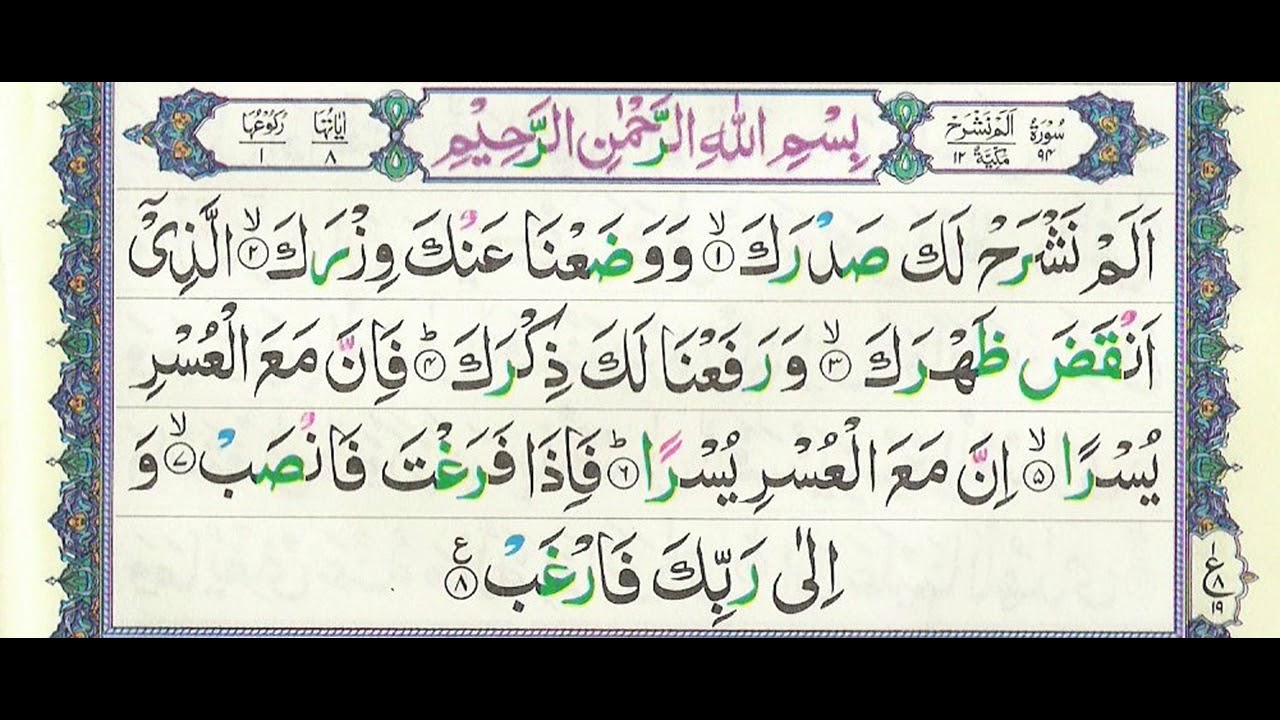 سُورَةُ اَلَمْ نَشْرَحْ
٩٤ مَكِّيَّةٌ ١٢
بِسْمِ اللّٰهِ الرَّحْمٰنِ الرَّحِيْمِ
اٰيَاتُهَا ٨
رُكُوْعُهَا ١
اَلَمْ نَشْرَحْ لَكَ صَدْرَكَ ۙ﴿۱﴾ وَوَضَعْنَا عَنْكَ وِزْرَكَ ۙ﴿۲﴾ الَّذِیْۤ
اَنْقَضَ ظَهْرَكَ ۙ﴿۳﴾ وَرَفَعْنَا لَكَ ذِكْرَكَ ؕ﴿۴﴾ فَاِنَّ مَعَ الْعُسْرِ
يُسْرًا ۙ﴿۵﴾ اِنَّ مَعَ الْعُسْرِ يُسْرًا ؕ﴿۶﴾ فَاِذَا فَرَغْتَ فَانْصَبْ ۙ﴿۷﴾ وَ
اِلٰى رَبِّكَ فَارْغَبْ ﴿۸﴾ ع
١
ع
٨
١٩